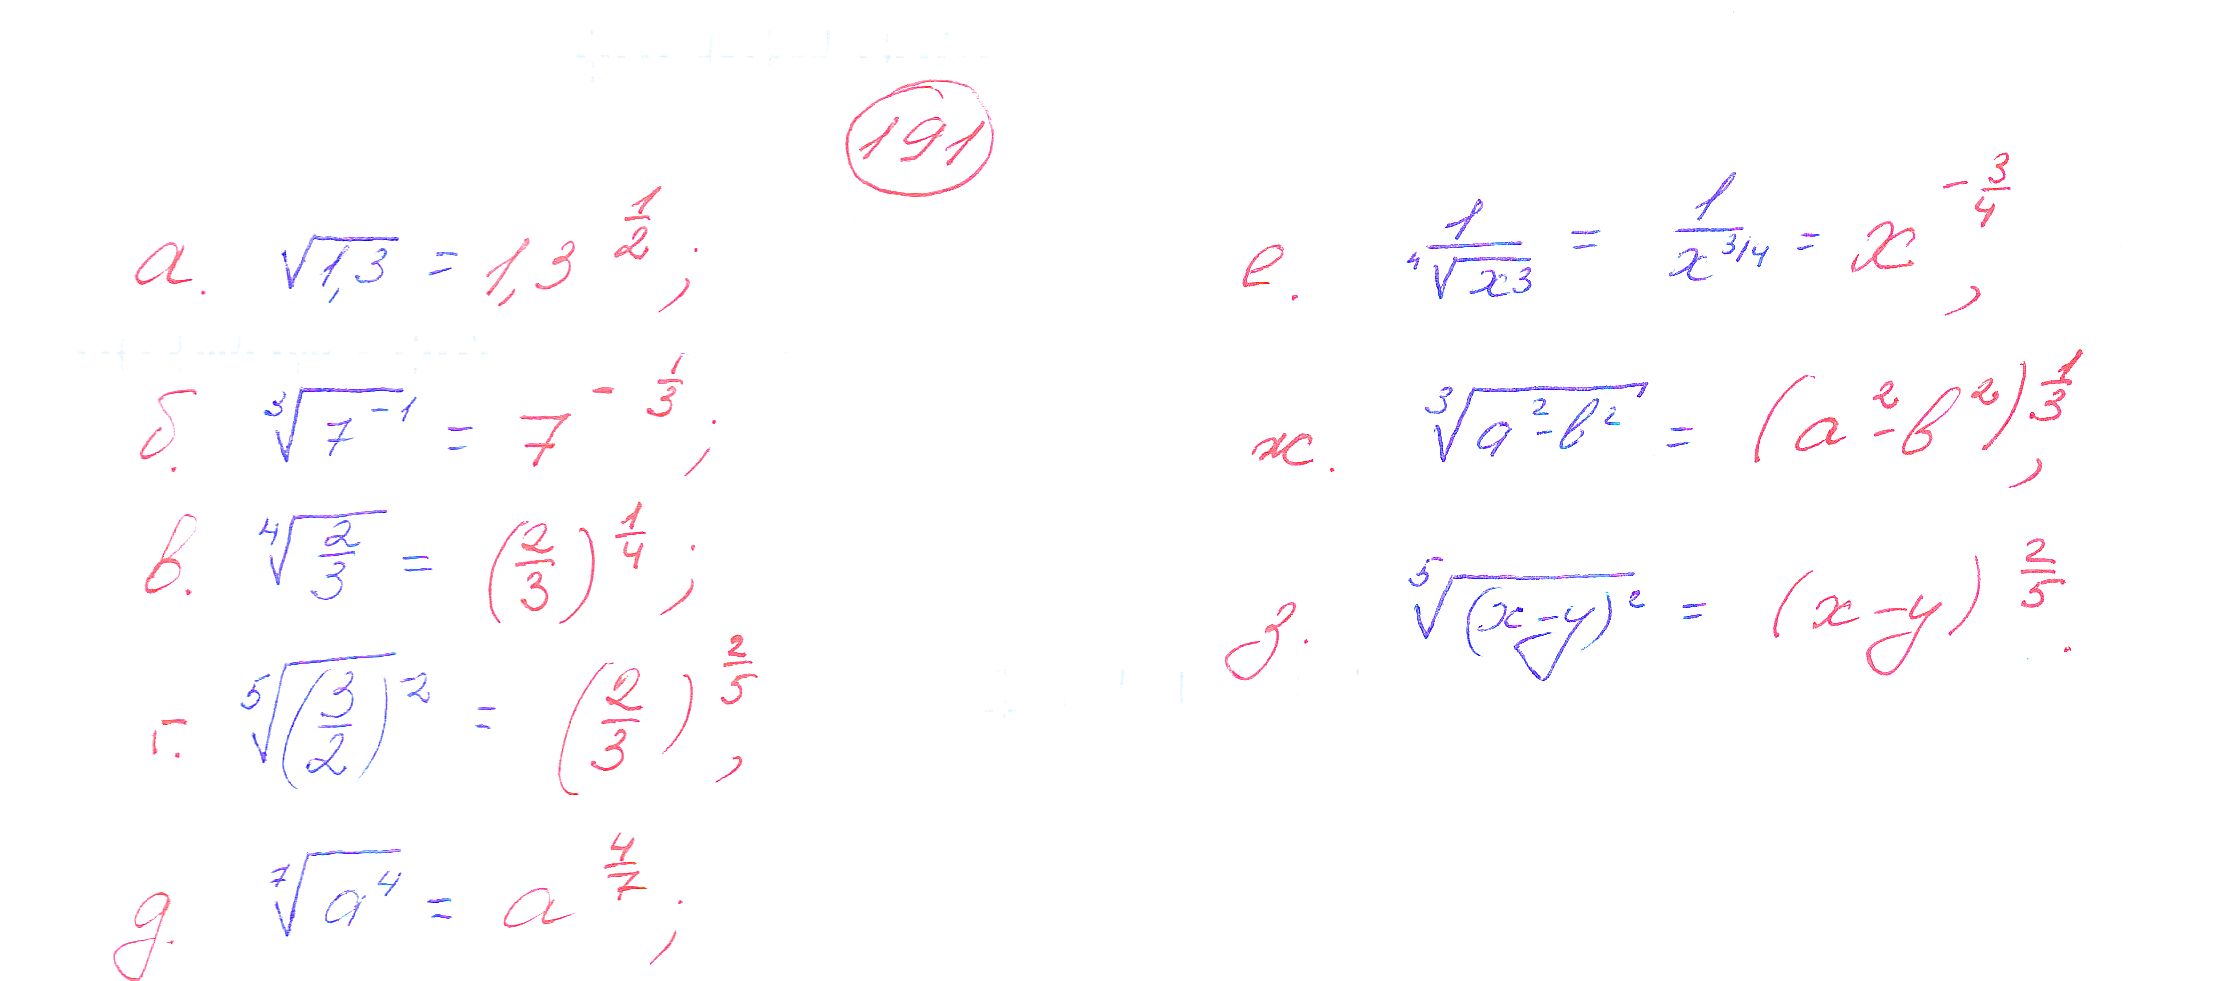 191
а. √1,3 = 1,3^(1/2);
б. ³√(7^(-1)) = 7^(-1/3);
в. ⁴√(2/3) = (2/3)^(1/4);
г. ⁵√((3/2)^(-2)) = (2/3)^(2/5),
д. ⁷√(a^4) = a^(4/7);
е. 1/⁴√(x3) = 1/x^(3/4) = x^(-3/4),
ж. ³√(a²-b²) = (a²-b²)^(1/3),
з. ⁵√((x-y)²) = (x-y)^(2/5).